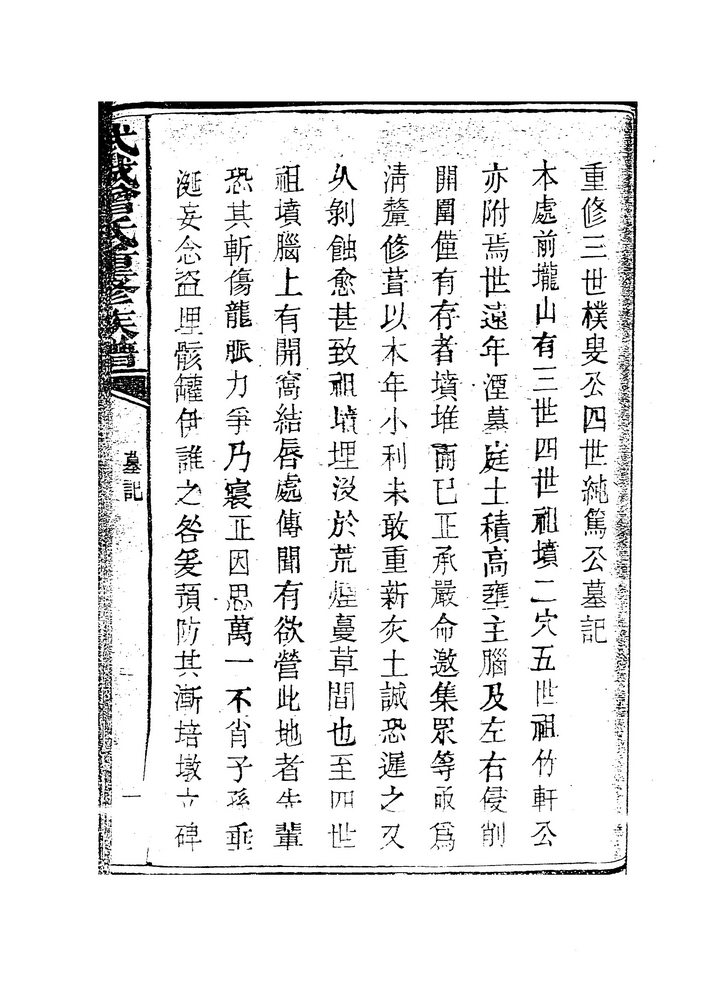 重修三世樸叟公四世純篤公墓記
本處前壠山有三世四世祖墳二穴五世祖竹軒公
亦附焉世遠年湮墓庭土積高壅主腦及左右侵削
開圍僅有存者墳堆而已正承嚴命邀集眾等亟為
清釐修葺以本年小利未敢重新灰土誠恐遲之又
久剝蝕愈甚致祖墳埋沒於荒煙蔓草間也至四世
祖墳腦上有開窩結唇處傳聞有欲營此地者先輩
恐其斬傷龍脈力爭乃寢正因思萬一不肖子孫垂
涎妄念盜埋骸罐伊誰之咎爰預防其漸培墩立碑
武城曾氏重修族譜
墓記
一